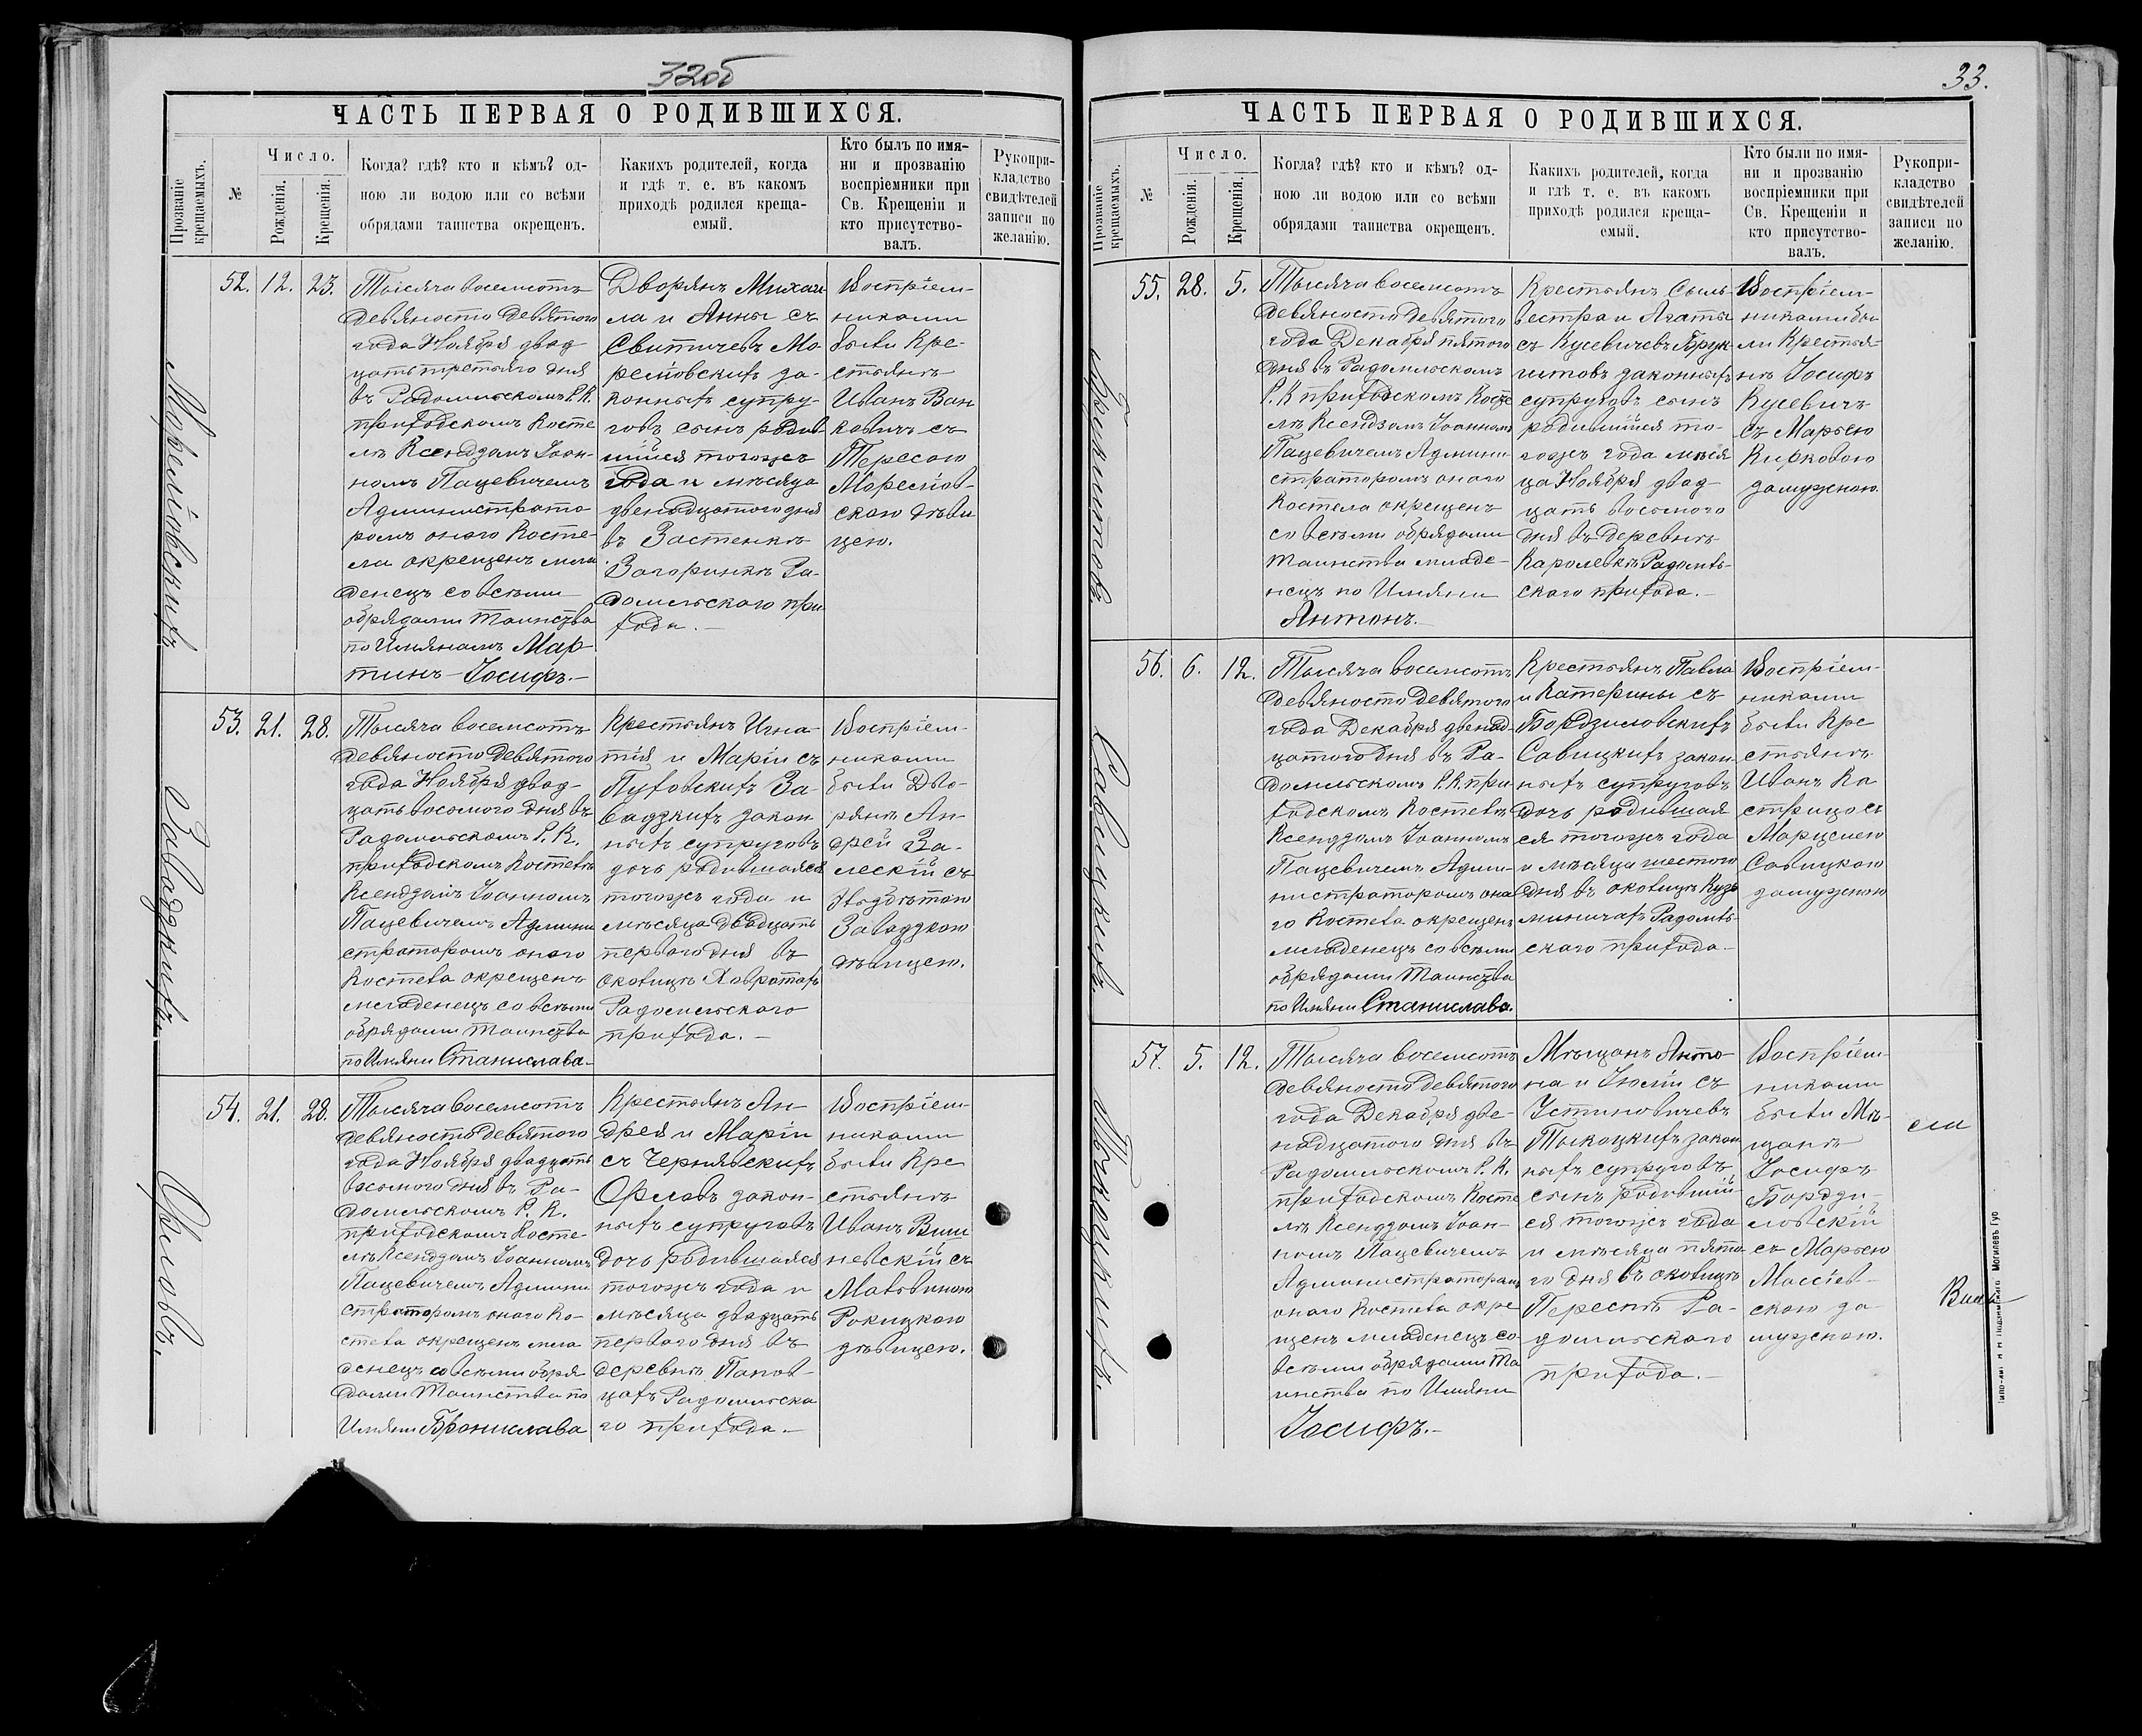 32об
ЧАСТЬ ПЕРВАЯ О РОДИВШИХСЯ.
Прозваніе крещаемыхъ.
№
Число.
Рожденія.
Крещенія.
Когда? гдѣ? кто и кѣмъ? од-
ною ли водою или со всѣми
обрядами таинства окрещенъ.
Какихъ родителей, когда
и гдѣ т. е. въ какомъ
приходѣ родился креща-
емый.
Кто былъ по имя-
ни и прозванію
воспріемники при
Св. Крещеніи и
кто присутство-
валъ.
Рукопри-
кладство
свидѣтелей
записи по
желанію.
52. 12. 23.
Тысяча восемсотъ
девяносто девятого
года Ноября двад
цать третьяго дня
въ Радомльскомъ Р. К.
приходскомъ Косте
лѣ Ксендзомъ Іоан-
номъ Пацевичемъ
Администрато
ромъ оного Косте-
ла окрещенъ мла
денецъ со всѣми
обрядами Таинства
по Имянамъ Мар-
тинъ-Іосифъ.-
Дворянъ Михаи
ла и Анны съ
Свитичевъ Мо
релiовскихъ за-
конныхъ супру-
говъ сынъ родив-
шійся тогожъ
года и мѣсяца
двенадцатого дня
въ Застенкѣ
Загоринкѣ Ра-
домльского при
хода.-
Воспріем-
никами
были Кре-
стьянъ
Иванъ Ван
ковичъ съ
Тересою
Мореліов-
скою дѣви
цею.
53. 21. 28.
Завадзкихъ.
Тысяча восемсотъ
девяносто девятого
года Ноября двад-
цать восьмого дня въ
Радомльскомъ Р. К.
приходскомъ Костелѣ
Ксендзомъ Іоанномъ
Пацевичемъ Админи
стратором оного
Костела окрещенъ
младенецъ со всѣми
обрядами Таинства
по Имяни Станислава-
Крестьянъ Игна-
тія и Маріи съ
Пуховскихъ За-
вадзкихъ закон
ныхъ супруговъ
дочь родившаяся
тогожъ года и
мѣсяца двадцать
первого дня въ
околицѣ Ховратахъ
Радомльского
прихода.-
Воспріем-
никами
были Дво-
рянъ Ан-
дрей За-
лескій съ
Завадзкою
дѣвицею.
54. 21. 28.
Орловъ.
Тысяча восемсотъ
девяносто девятого
года Ноября двадцать
восьмого дня въ Ра-
домльскомъ Р. К.
приходскомъ Косте-
лѣ Ксендзомъ Іоанномъ
Пацевичемъ Админи
стратором оного Ко-
стела окрещенъ мла
денецъ со всѣми обря
дами Таинства по
Имяни Бронислава
Крестьянъ Ан-
дрея и Маріи
съ Чернявскихъ
Орловъ закон-
ныхъ супруговъ
дочь родившаяся
тогожъ года и
мѣсяца двадцать
первого дня въ
деревнѣ Папов-
цахъ Радомльска
го прихода.-
Воспріем-
никами
были Кре
стьянъ
Иванъ Виш
невскій съ
Мальвиною
Рокицкою
дѣвицею.
33.
ЧАСТЬ ПЕРВАЯ О РОДИВШИХСЯ.
Прозваніе крещаемыхъ.
№
Число.
Рожденія.
Крещенія.
Когда? гдѣ? кто и кѣмъ? од-
ною ли водою или со всѣми
обрядами таинства окрещенъ.
Какихъ родителей, когда
и гдѣ т. е. въ какомъ
приходѣ родился креща-
емый.
Кто были по имя-
ни и прозванію
воспріемники при
Св. Крещеніи и
кто присутство-
валъ.
Рукопри-
кладство
свидѣтелей
записи по
желанію.
55. 28. 5.
Тысяча восемсотъ
девяносто девятого
года Декабря пятого
дня въ Радомльскомъ
Р. К приходскомъ Косте
лѣ Ксендзомъ Іоанномъ
Пацевичемъ Админи-
стратором оного
Костела окрещенъ
со всѣми обрядами
Таинства младе-
нецъ по Имяни
Антонъ.-
Крестьянъ Силь-
вестра и Агаты
съ Кусевичевъ Брук-
штовъ законныхъ
супруговъ сынъ
родившійся то-
гожъ года мѣся
ца Ноября двад-
цать восьмого
дня въ деревнѣ
Каролевкѣ Радомль-
ского прихода.-
Воспріем-
никами бы
ли Крестья-
нъ Іосифъ
Кусевичъ
съ Марьею
Кирковою
замужною.
56. 6. 12.
Савицкихъ
Тысяча восемсотъ
девяносто девятого
года Декабря двенад
цатого дня въ Ра-
домльскомъ Р. К. при
ходскомъ Костелѣ
Ксендзомъ Іоанномъ
Пацевичемъ Адми-
нистраторомъ она
го Костела окрещенъ
младенецъ со всѣми
обрядами Таинства
по Имяни Станислава.
Крестьянъ Павла
и Катерины съ
Бордзиловскихъ
Савицкихъ закон
ныхъ супруговъ
дочь родившая
ся тогожъ года
и мѣсяца шестого
дня въ околицѣ Кузь
миничахъ Радомль-
скаго прихода.-
Воспріем-
никами
были Кре
стьянъ
Иванъ Ка
стрицо съ
Марцелею
Савицкою
замужною
57. 5. 12.
Тысяча восемсотъ
девяносто девятого
года Декабря две-
надцатого дня въ
Радомльскомъ Р. К.
приходскомъ Косте
лѣ Ксендзомъ Іоан-
номъ Пацевичемъ
Администраторомъ
оного Костела окре
щенъ младенецъ со
всѣми обрядами Та
инства по Имяни
Іосифъ.-
Мѣщанъ Анто-
на и Юліи съ
Устиновичевъ
закон
ныхъ супруговъ
сынъ родившій-
ся тогожъ года
и мѣсяца пято
го дня въ околицѣ
Переспѣ Ра-
домльского
прихода.-
Воспріем-
никами
были Мѣ-
щанъ
Іосифъ
Бордзи-
ловскій
съ Марьею
скою за
мужною.